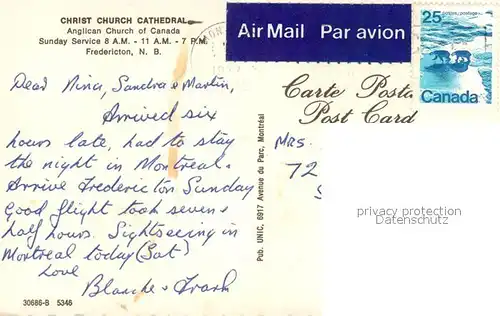 CHRIST CHURCH CATHEDRAL
Anglican Church of Canada
Sunday Service 8 A.M. - 11 A.M. - 7 P.M.
Fredericton, N. B.
Air Mail Par avion
25
Canada
Carte Postale
Post Card
Dear Nina, Sandra & Martin,
Arrived six
hours late, had to stay
the night in Montreal.
Arrive Fredericton Sunday
Good flight took seven &
half hours. Sightseeing in
Montreal today (Sat)
Love
Blanche & Frank
30686-B 5346
Pub. UNIC, 6917 Avenue du Parc, Montréal
MRS.
72
S
privacy protection
Datenschutz